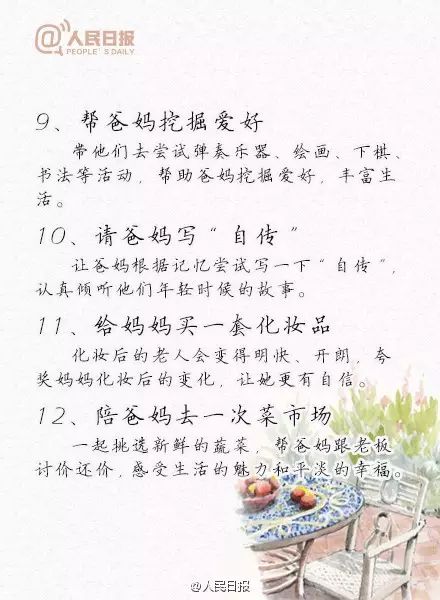 @人民日报
PEOPLE'S DAILY
9、帮爸妈挖掘爱好
带他们去尝试弹奏乐器、绘画、下棋、
书法等活动，帮助爸妈挖掘爱好，丰富生
活。
10、请爸妈写“自传”
让爸妈根据记忆尝试写一下“自传”，
认真倾听他们年轻时候的故事。
11、给妈妈买一套化妆品
化妆后的老人会变得明快、开朗，夸
奖妈妈化妆后的变化，让她更有自信。
12、陪爸妈去一次菜市场
一起挑选新鲜的蔬菜，帮爸妈跟老板
讨价还价，感受生活的魅力和平淡的幸福。
@人民日报